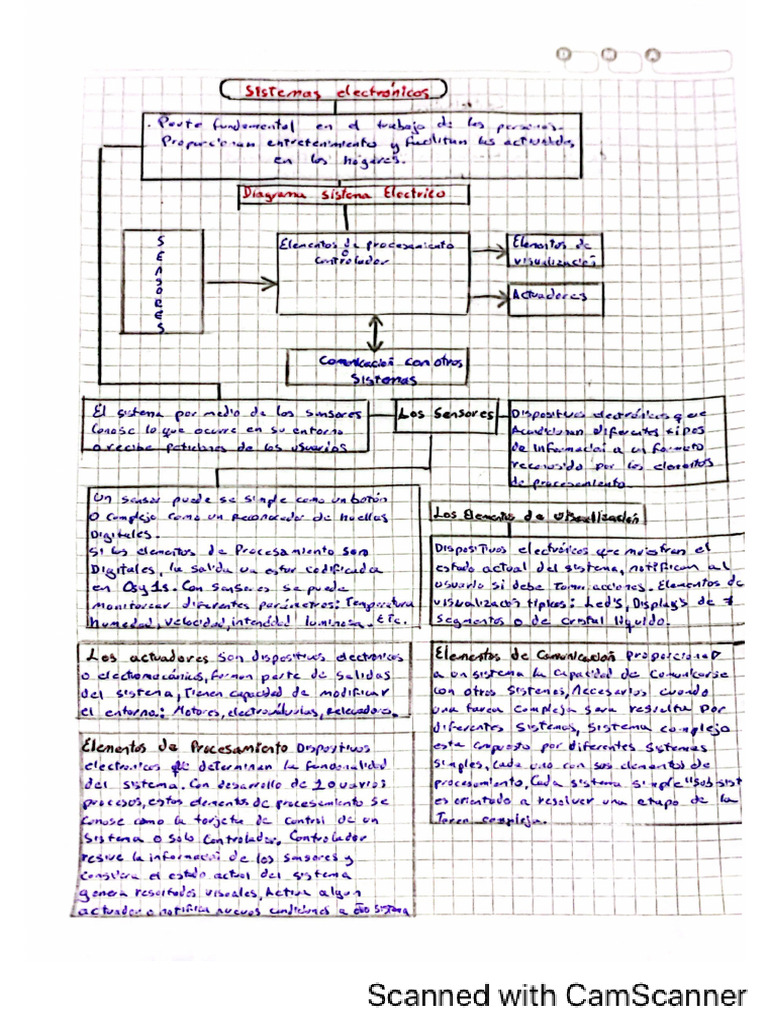 D M A
Sistemas electrónicos
. Parte fundamental en el trabajo de las personas.
Proporcionan entretenimiento y facilitan las actividades
en los hogares.
Diagrama Sistema Electrico
SENSORES
Elementos de procesamiento
o
Controlador
Elementos de
visualización
Actuadores
Comunicación con otros
Sistemas
El sistema por medio de los sensores
conose lo que ocurre en su entorno
o recibe peticiones de los usuarios
Los Sensores
Dispositivos electrónicos que
Acondicionan diferentes tipos
de Información a un formato
reconosido por los elementos
de procesamiento.
Un sensor puede se simple como un botón
O complejo como un Reconocedor de huellas
Digitales.
Si los elementos de Procesamiento son
Digitales, la salida va estar codificada
en 0s y 1s. Con sensores se puede
monitorear diferentes parámetros: Temperatura
humedad, velocidad, intensidad luminosa. Etc.
Los Elementos de Visualización
Dispositivos electrónicos que muestran el
estado actual del sistema, notifican al
usuario si debe Tomar acciones. Elementos de
visualización típicos: Led's, Displays de 7
segmentos o de cristal líquido.
Los actuadores son dispositivos electronicos
o electromecánicos, forman parte de salidas
del sistema, Tienen capacidad de modificar
el entorno: Motores, electroválvulas, Relevadores.
Elementos de Comunicación proporcionan
a un sistema la capacidad de comunicarse
con otros Sistemas, Necesarios cuando
una tarea compleja sera resuelta por
diferentes Sistemas, Sistema complejo
esta compuesto por diferentes Sistemas
Simples, Cada uno con sus elementos de
procesamiento, Cada sistema simple "Sub sist
es orientado a resolver una etapa de la
Tarea compleja.
Elementos de Procesamiento Dispositivos
electronicos que determinan la funcionalidad
del sistema. Con desarrollo de 1 o varios
procesos, estos elementos de procesamiento se
conose como la tarjeta de control de un
Sistema o solo Controlador, Controlador
resive la información de los sensores y
considera el estado actual del sistema
genera resultados visuales, Activa algun
actuador o notifica nuevas condiciones a otro sistema
Scanned with CamScanner